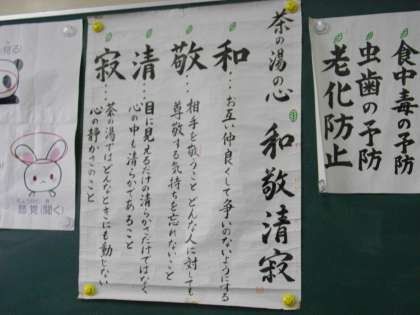 食中毒の予防
虫歯の予防
老化防止
茶の湯の心 和敬清寂
和…お互い仲良くして争いのないようにする
敬…相手を敬うこと どんな人に対しても
尊敬する気持ちを忘れないこと
清…目に見えるだけの清らかさだけではなく
心の中も清らかであること
寂…茶の湯ではどんなときにも動じない
心の静かさのこと
聴覚(聞く)